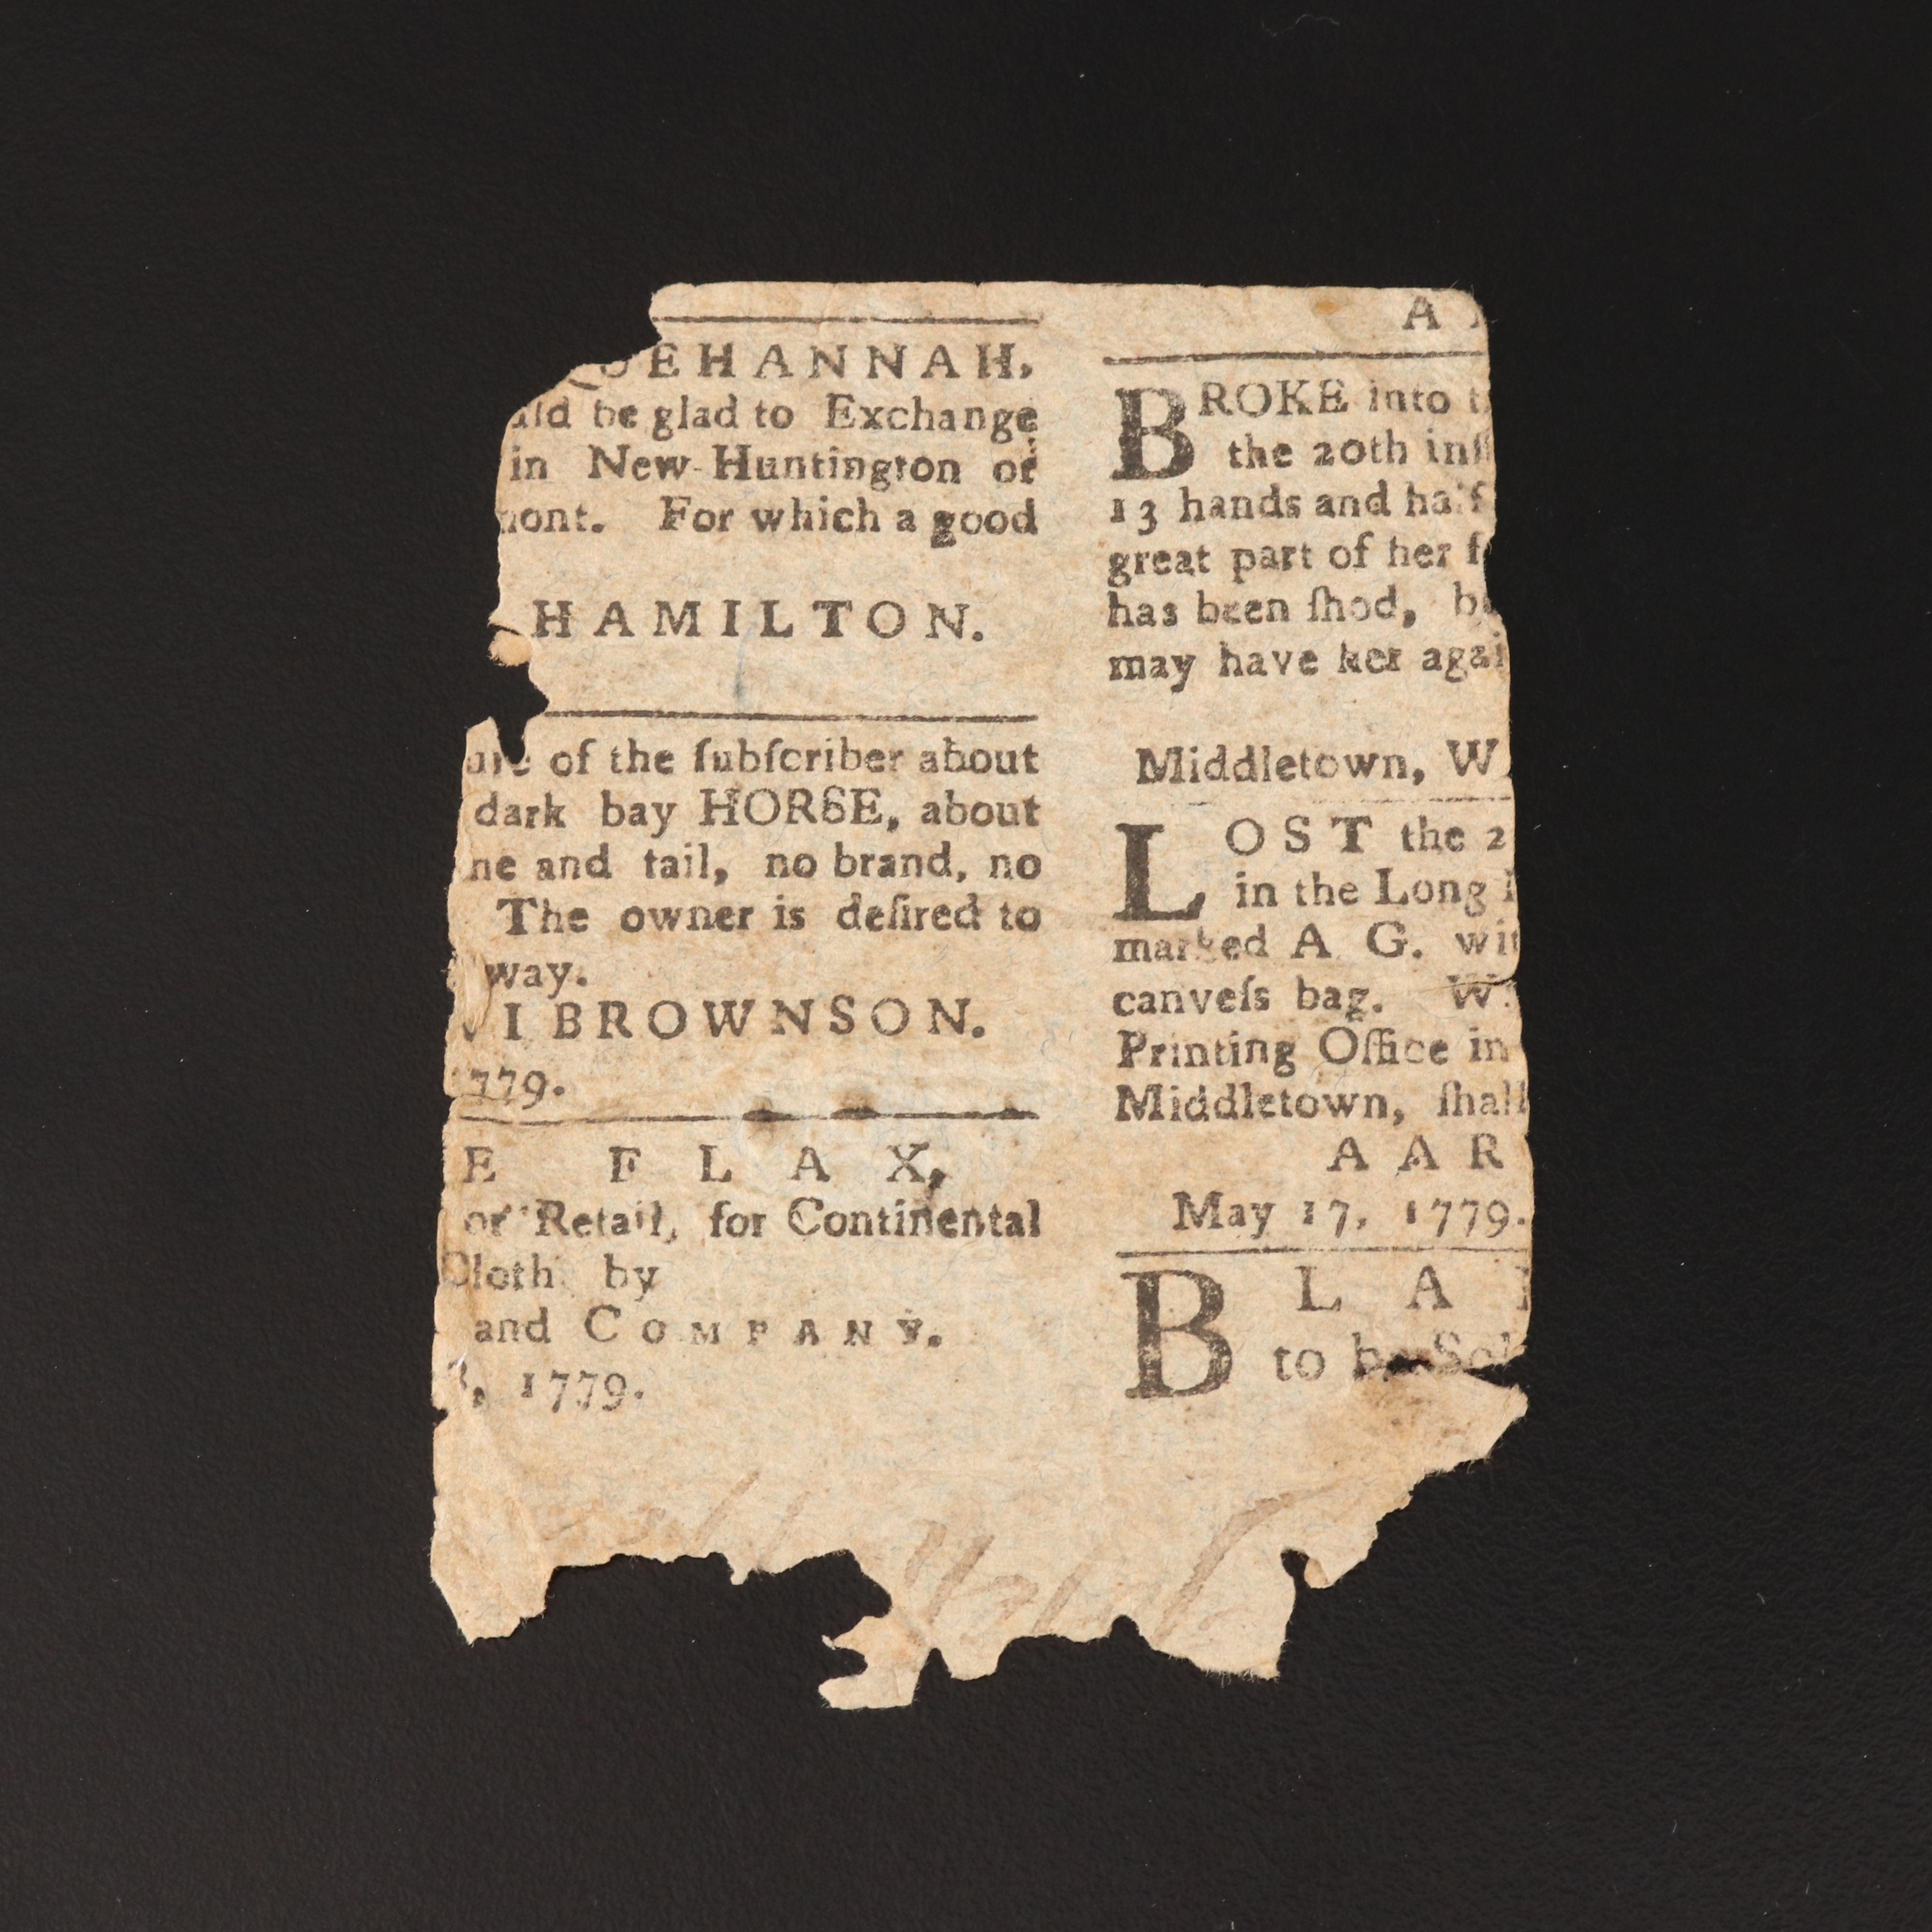 QUEHANNAH,
be glad to Exchange
in New-Huntington or
mont. For which a good
HAMILTON.
ure of the ſubſcriber about
dark bay HORSE, about
ne and tail, no brand, no
The owner is deſired to
way.
VI BROWNSON.
1779.
E FLAX,
or Retail, for Continental
Cloth by
and COMPANY.
, 1779.
A
BROKE into t
the 20th inſt
13 hands and half
great part of her f
has been ſhod, b
may have her agai
Middletown, W
LOST the 2
in the Long
marked A G. wit
canveſs bag. W
Printing Office in
Middletown, ſhall
AAR
May 17, 1779.
BLA
to be Sol